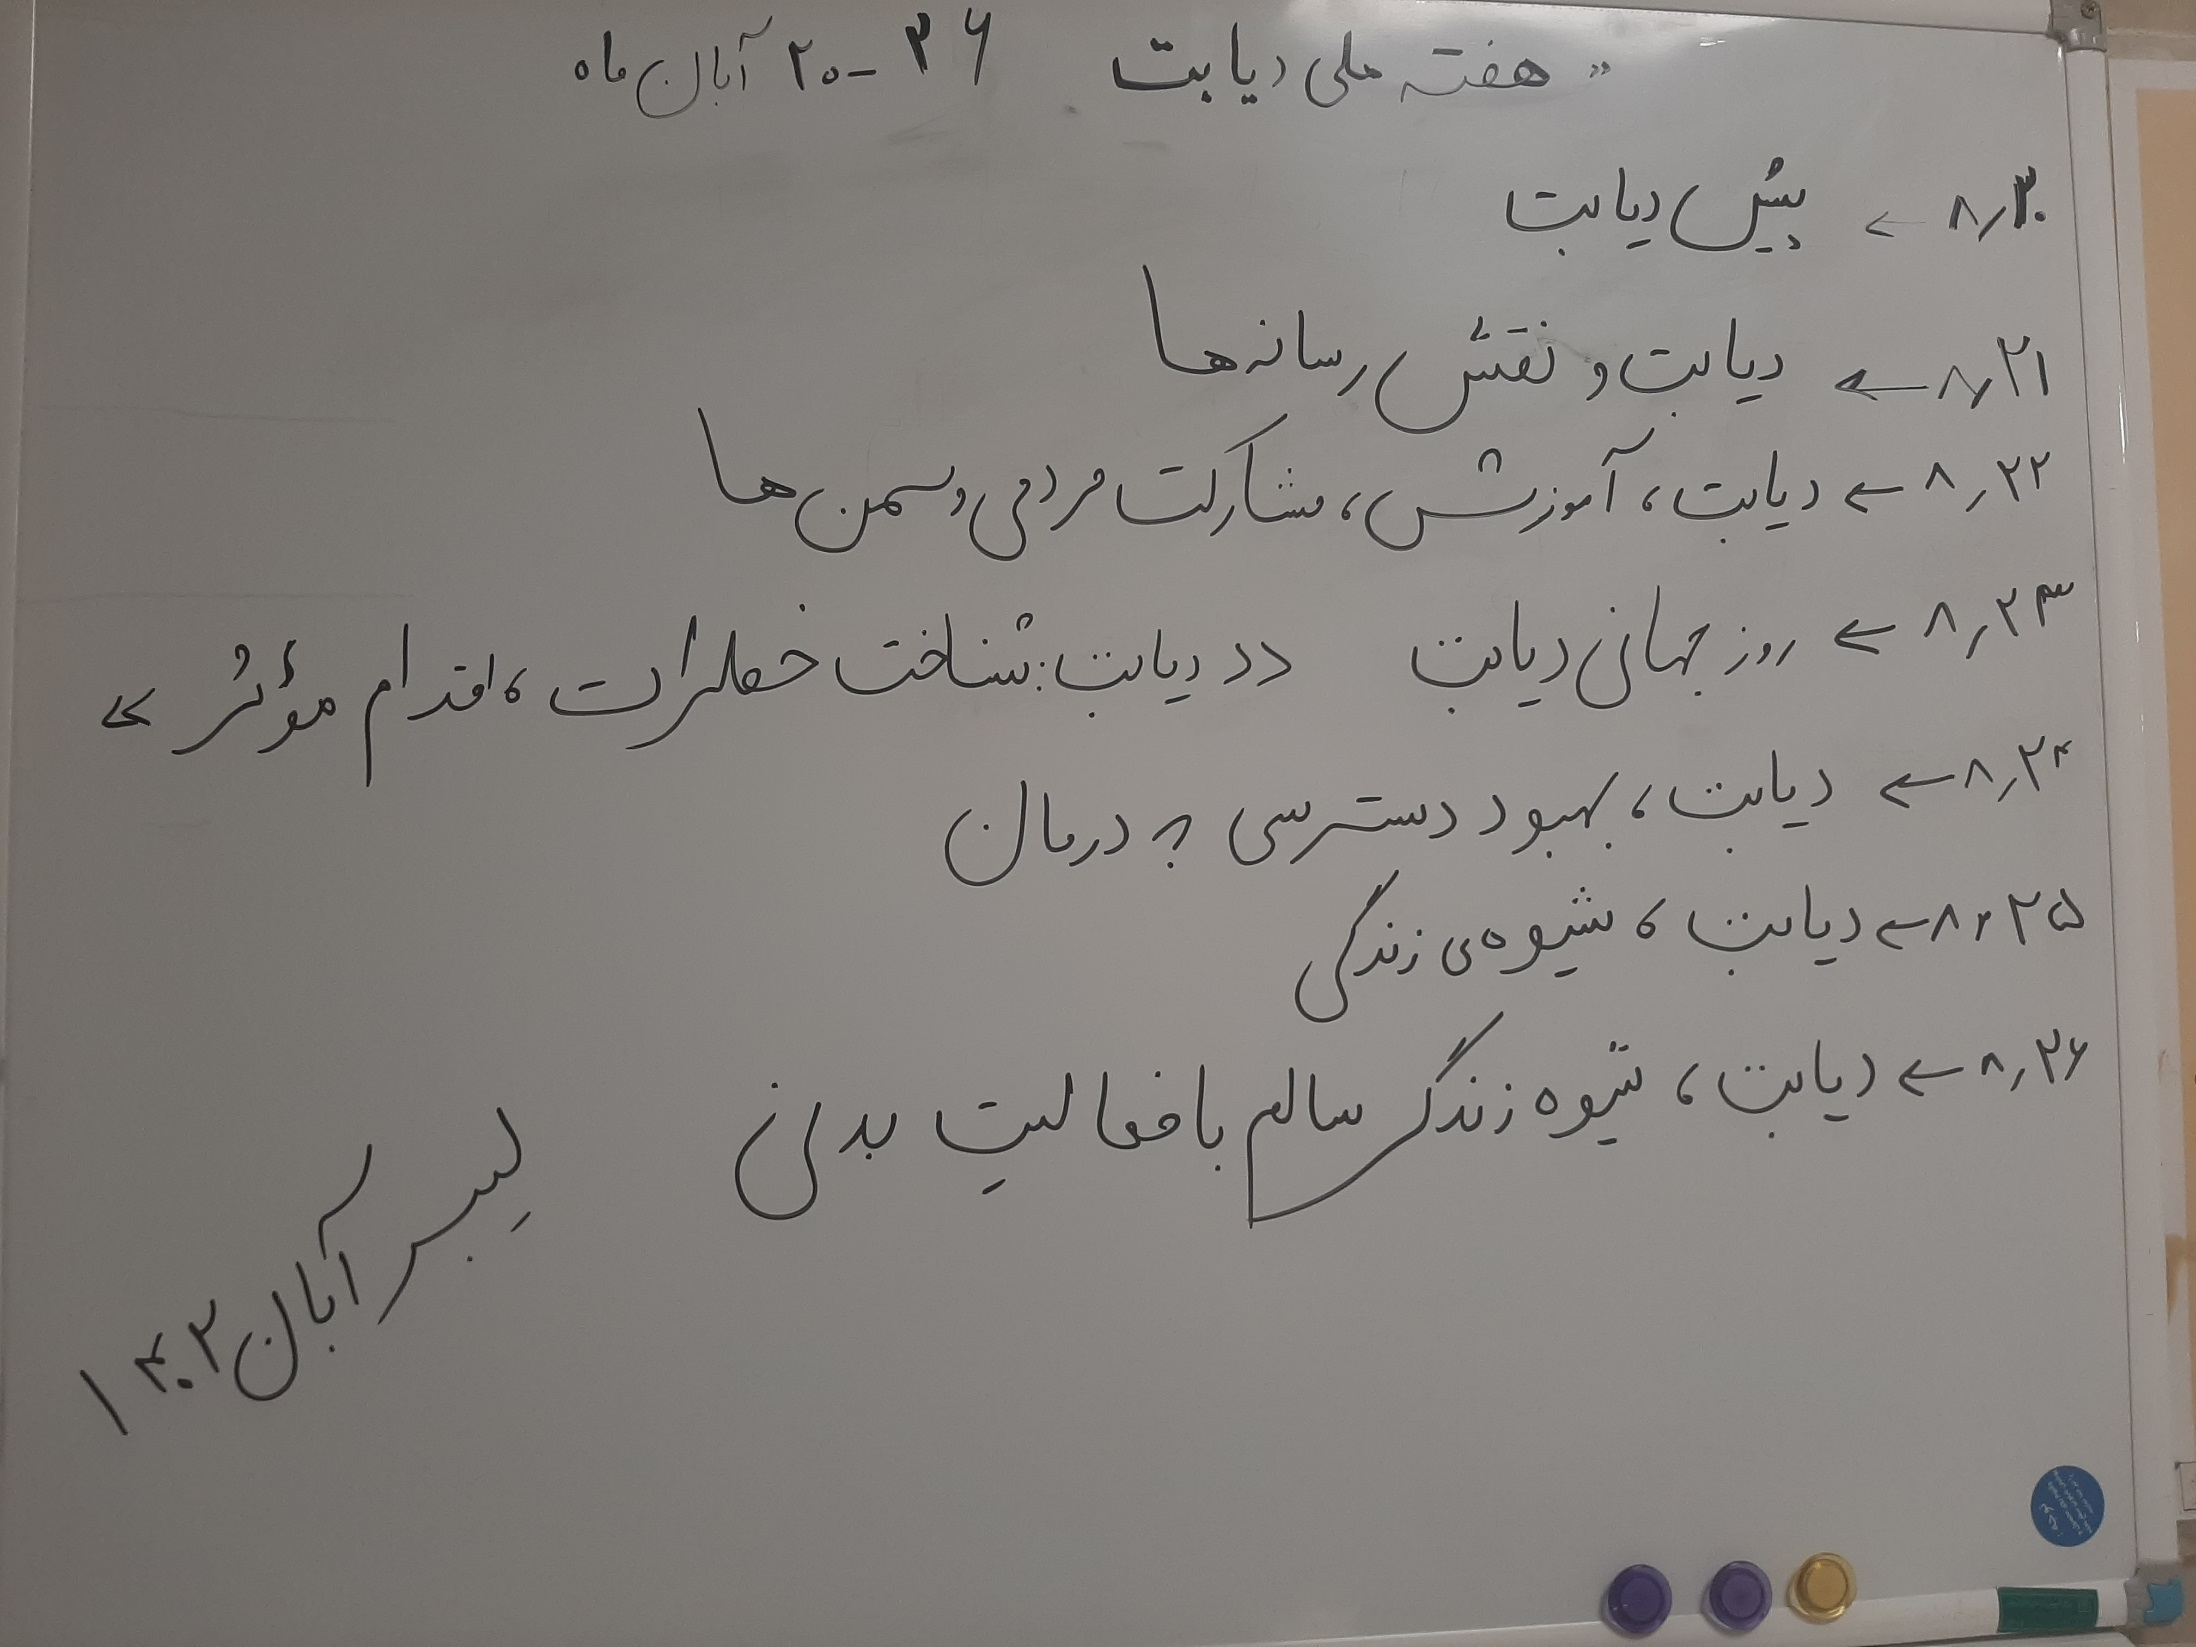 « هفته ملی دیابت ۲۶ - ۲۰ آبان ماه
۸٫۲۰ ← پیش دیابت
۸٫۲۱ ← دیابت و نقش رسانه ها
۸٫۲۲ ← دیابت، آموزش، مشارکت مردمی و سمن ها
۸٫۲۳ ← روز جهانی دیابت «دیابت: شناخت خطرات، اقدام مؤثر»
۸٫۲۴ ← دیابت، بهبود دسترسی به درمان
۸٫۲۵ ← دیابت، شیوه ی زندگی
۸٫۲۶ ← دیابت، شیوه زندگی سالم با فعالیت بدنی
لیبر آبان ۱۴۰۲
توجه: